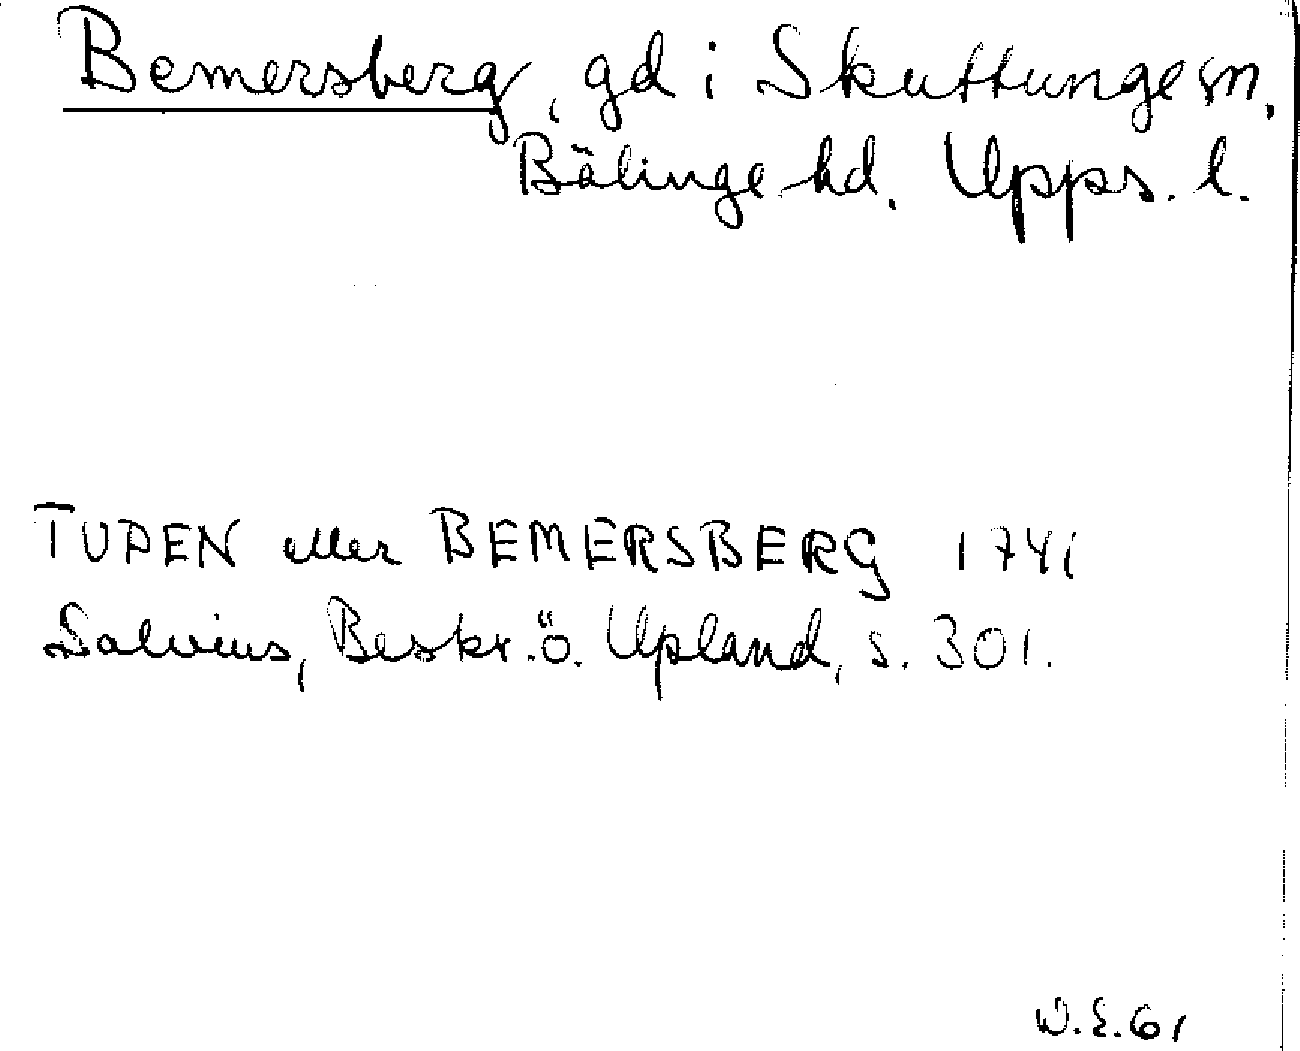 Bemersberg, gd i Skuttunge sn,
Bälinge hd. Upps. l.
TUDEN eller BEMERSBERG 1741
Salvius, Beskr. ö. Upland, s. 301.
W.E.61